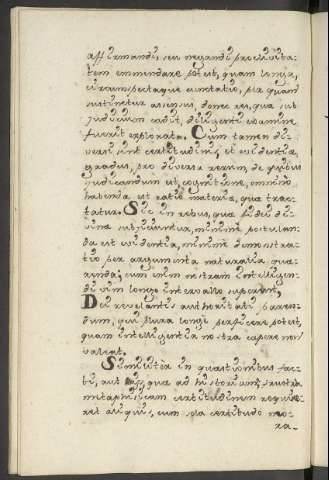 affirmandi, seu negandi proclivita-
tem emmendare potest, quam longa,
circumspectaque cunctatio, per quam
sustinetur assensus, donec res, quae sub
judicium cadit, diligenti examine
fuerit explorata. Cum tamen di-
versi sint certitudinis, et evidentiae
gradus, pro diversa rerum, de quibus
judicandum est, cognitione, omnino
habenda est ratio materiae, quae trac-
tatur. Sic in rebus, quae fidei di-
vinae subjiciuntur, minime postulan-
da est evidentia, minime demonstra-
tio per argumenta naturalia quae-
renda; cum enim nostram intelligen-
di vim longe intervallo superent,
Dei revelantis authoritati paren-
dum, qui plura longe perficere potest,
quam intelligentia nostra capere non
valeat.
Similiter in quaestionibus fac-
ti, aut quae ad historiam, frustra
metaphisicam certitudinem requi-
ret aliquis, cum sola certitudo mo-
ra-